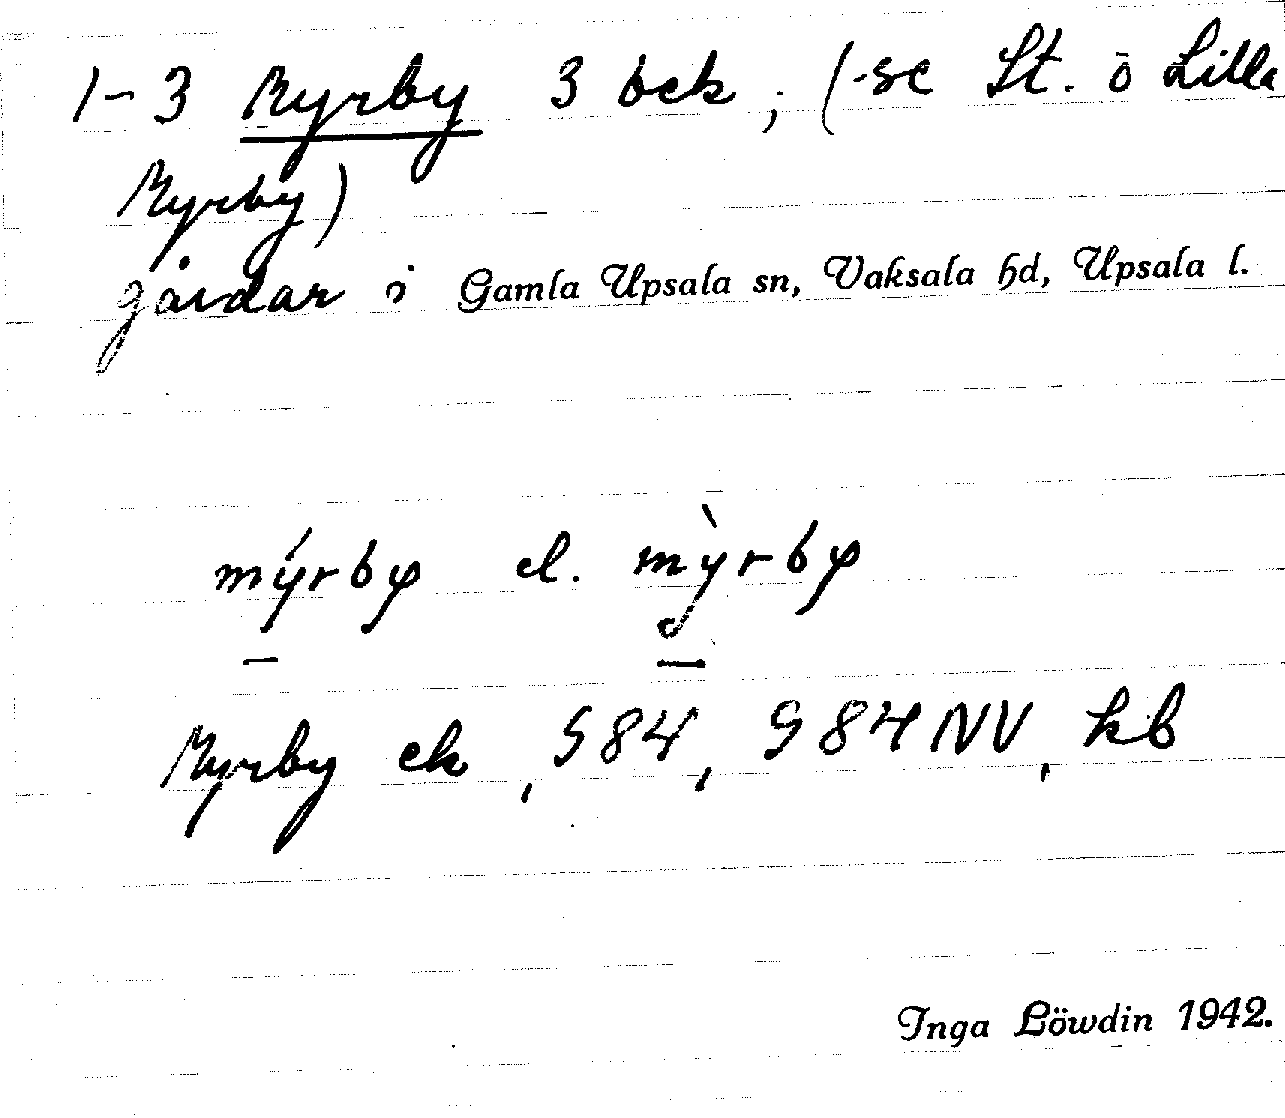 1-3 Myrby 3 bek, (-se St. o Lilla
Myrby)
gårdar i Gamla Upsala sn, Vaksala hd, Upsala l.
mýrby el. mỳrby
Myrby ek, S84, S84NV, kb
Inga Löwdin 1942.